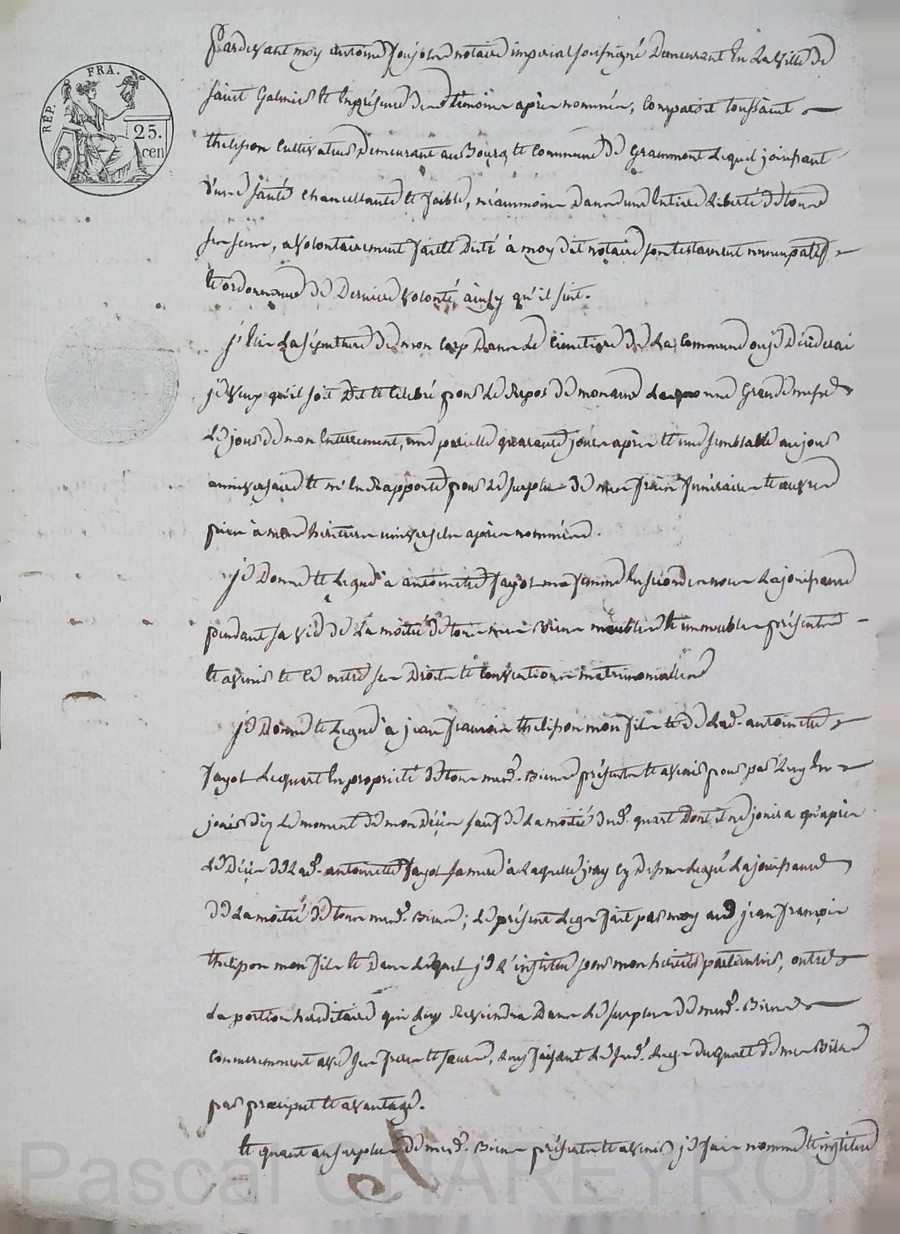 RÉP. FRA.
25.
cen
Pardevant moy antoine notaire imperial soussigné Demeurant En La Ville De
saint Galmier Et En présence des témoins après nommés, Comparoit toussaint
thelisson Cultivateur Demeurant au Bourg Et Commune De Grammont Lequel jouissant
D'une santé chancellante Et faible, néanmoins Dans une Entiere Liberté De tous
ses sens, a volontairement fait Et Dicté à moy dit notaire son testament nuncupatif
Et ordonnance De Derniere volonté, ainsy qu'il suit.
j'Elis La sépulture De mon Corp Dans Le Cimetiere De La Commune ou je Décéderai
je veux qu'il soit Dit Et Celebré pour Le Repos De mon ame une Grande messe
Le jour De mon Enterrement, une pareille quarante jours après Et une semblable au jour
anniversaire Et m'En Rapporte pour Le surplus De mes frais funéraires Et œuvres
pies à mes héritiers universels après nommés.
je Donne Et Legue à antoinette fayol ma femme En secondes noces La jouissance
pendant sa vie De La moitié De tous mes Biens meubles Et immeubles présents
Et avenir Et Ce outre ses Droits Et Conventions matrimoniales
je Donne Et Legue à jean francois thelisson mon fils Et De Lad. antoinette
fayol Le quart En propriété De tous mesd. Biens présents Et avenir pour par Luy En
jouir Dez Le moment De mon Décès sauf De La moitié Dud. quart Dont il ne jouira qu'après
Le Décès De Lad. antoinette fayol sa mere à Laquelle j'ay cy Dessus Legué La jouissance
De La moitié De tous mesd. Biens; Le présent Legs fait par moy aud. jean françois
thelisson mon fils Et Dans Lequel je L'institue pour mon héritier particulier, outre
La portion héréditaire qui Luy Reviendra Dans Le surplus De mesd. Biens
Concurremment avec ses freres Et sœurs, Luy faisant Le susd. Legs Du quart De mes Biens
par preciput Et avantage.
Et quant au surplus De mesd. Biens présents Et avenir je fais nomme Et institue
Pascal CHAREYRON